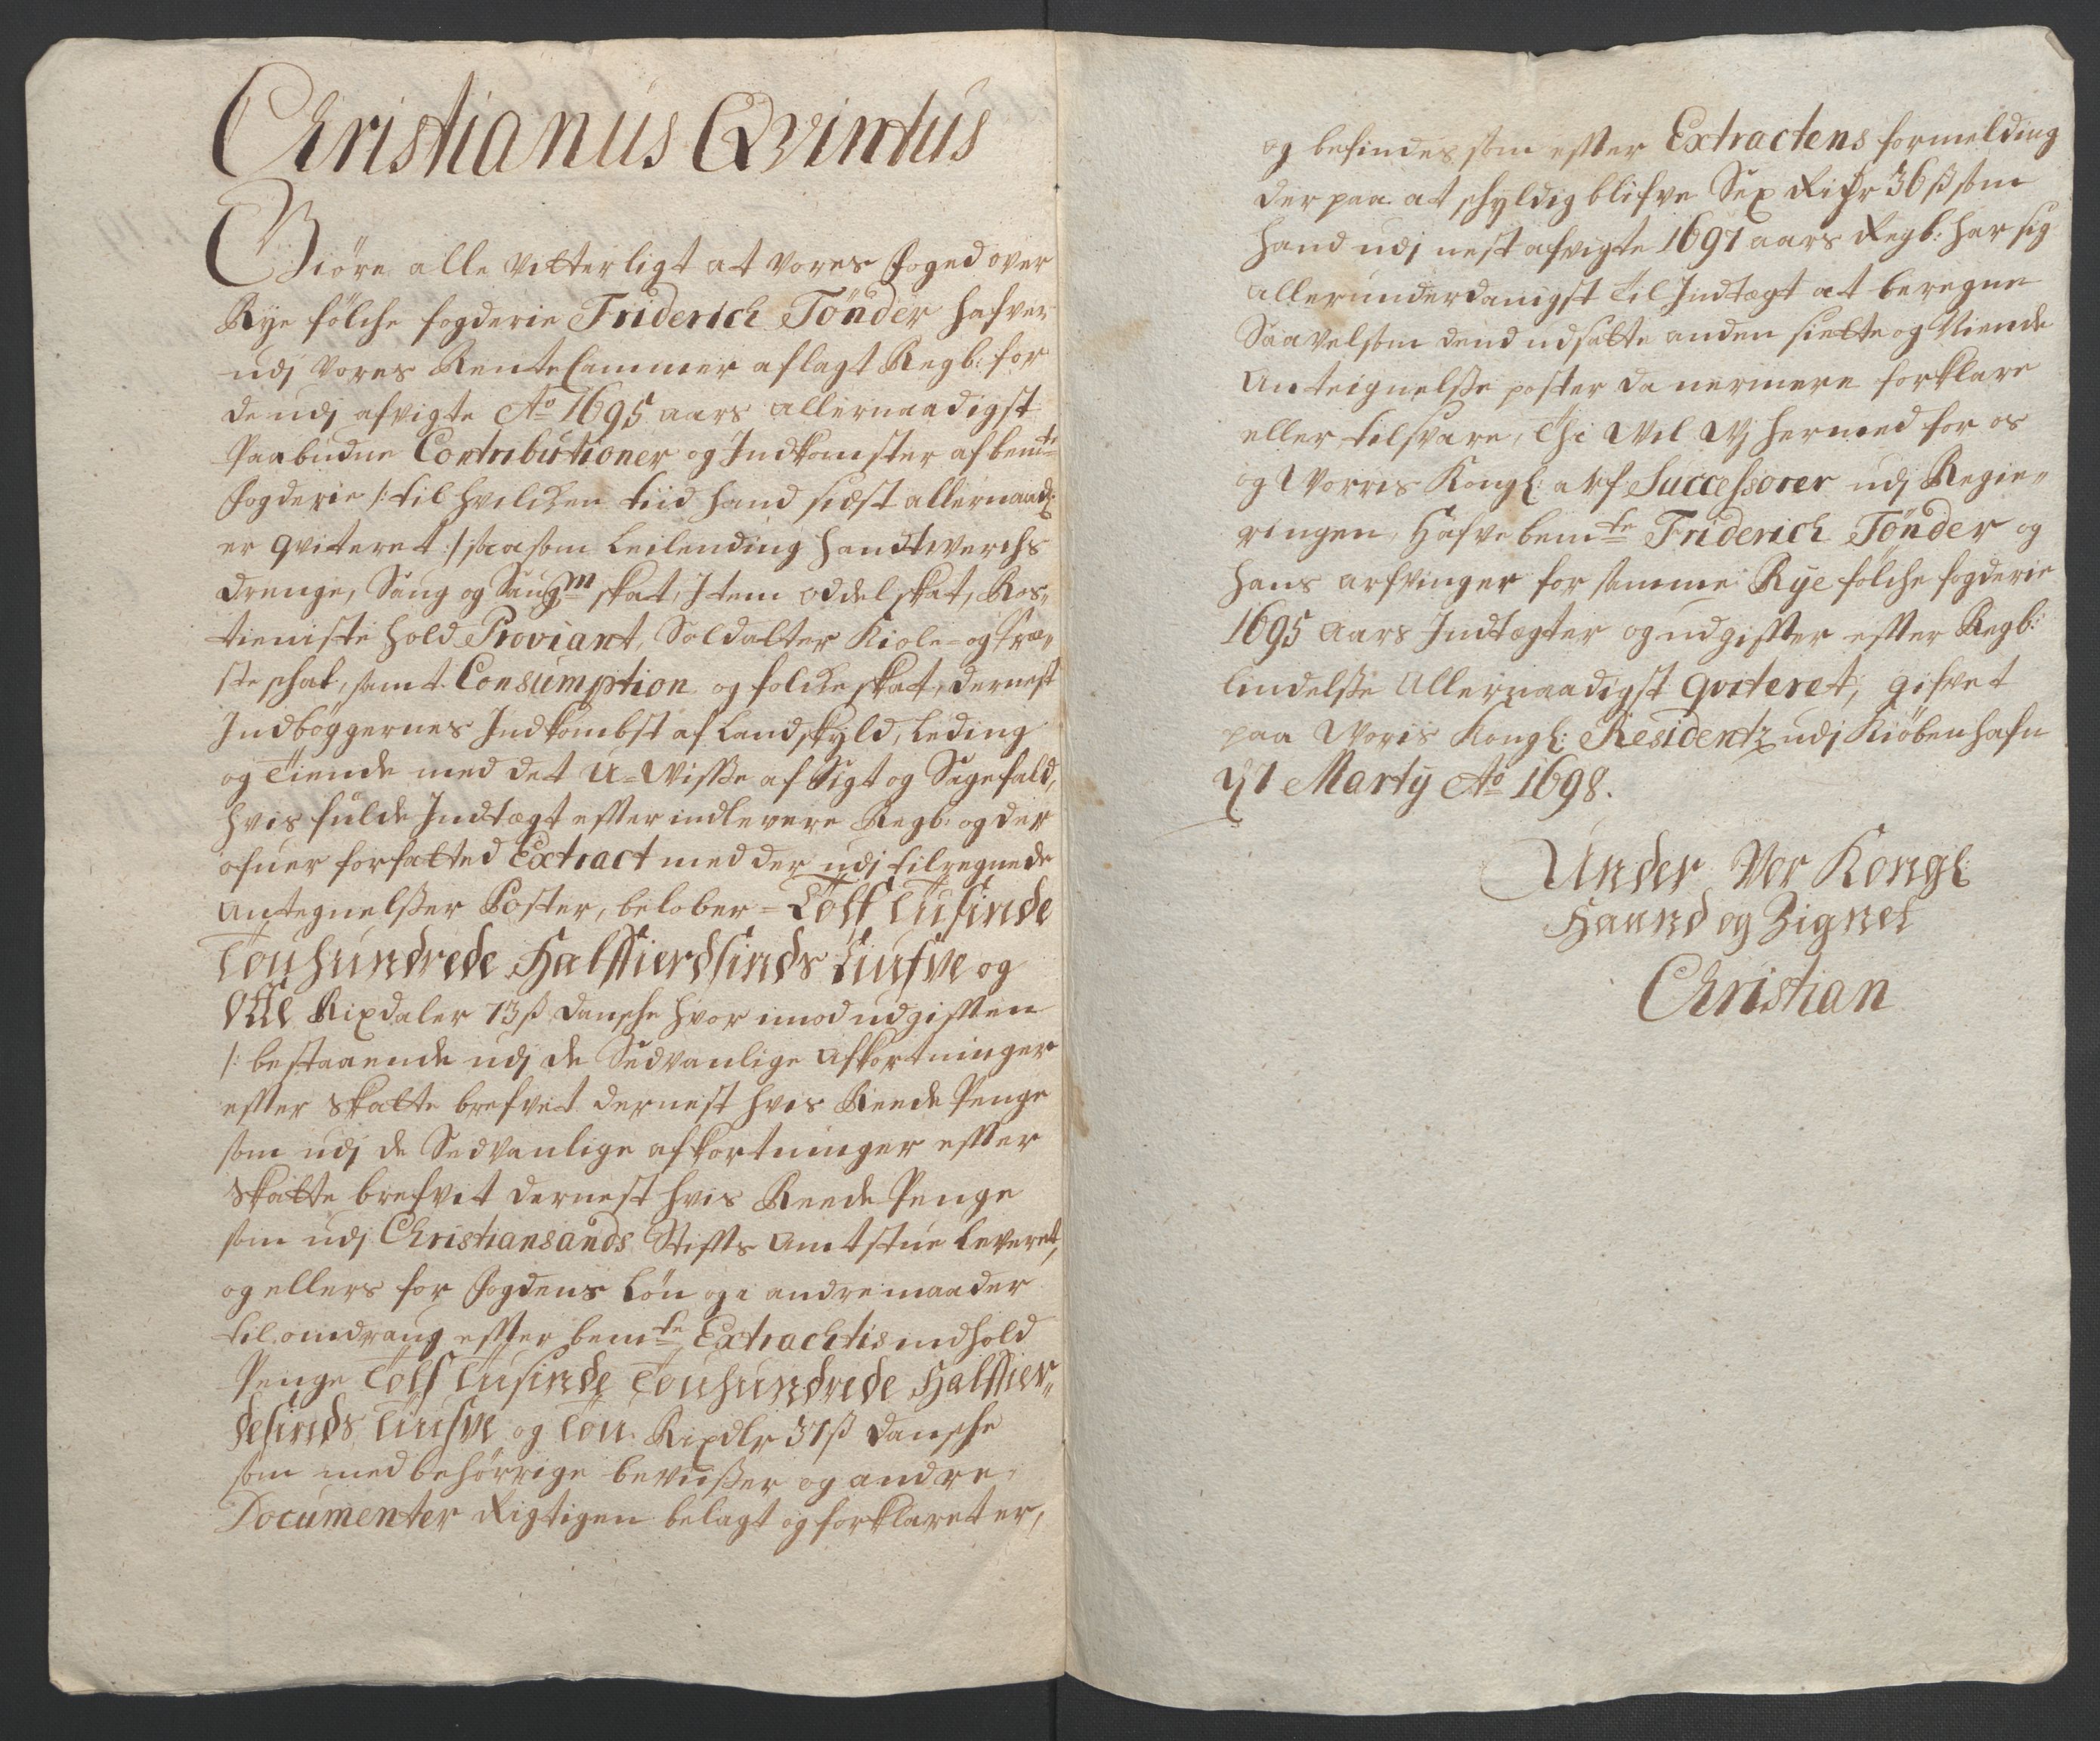 Christianus Qvintus
Giöre alle vitterligt at vores Foged over
Rye fölche fogderie Friderich Tönder hafver
udj vores Rente Cammer aflagt Regb: for
de udj afvigte Ao 1695 aars allernaadigst
Paabudne Contributioner og Indkomster af bemte
Fogderie /: til hvilcken tiid hand sidst allernaadt:
er qviteret :/ saasom Leilending handtwerchs
Drenge, Saug og Saugm skat, Item oddel skat, Ros„
tieniste hold Proviant, Soldatter Kiole- og Præ„
ste schat, samt Consumption og folcke skat, dernest
Indböggernes Indkombst af Landskyld, Leding
og Tiende med det U-Visse af Sigt og Sagefald,
hvis fulde Indtægt effter indlevere Regb: og der
ofuer forfatted Extract med der udj tilregnede
Antegnelsser Poster, belober - Tolf Tusinde
Tou hundrede Halffierdsinds Tiufve og
Otte Rixdaler 73 ß Dansche hvor imod udgifften
/: bestaaende udj de Sedvanlige Afkortninger
effter skatte brefvet dernest hvis Reede Penge
som udj de Sedvanlige afkortninger effter
skatte brefvet dernest hvis Reede Penge
som udj Christiansands Stiffts Amtstue leveret,
og ellers for Fogdens Lön og i andre maader
til omdrang effter bemte Extrachtis indhold
Penge Tolf Tusinde Touhundrede Halffier„
desinds Tiufve og Tou Rixdlr 37 ß Dansche
som med behörrige bevisser og andre
Documenter Rigtigen belagt og forklaret er,
og befindes som effter Extractens formelding
der paa at schyldig blifve Sex Rixdr 36 ß som
hand udj nest afvigte 1697 aars Regb: har sig
allerunderdanigst til Indtægt at beregne
Saavelsom dend udsatte anden siette og Niende
Anteignelsse poster da nermere forklare
eller tilsvare, Thi Vil Vj hermed for os
og Worris Kongl: arf Successorer udj Regie„
ringen, Hafve bemte Friderich Tönder og
hans arfvinger for samme Rye fölche fogderie
1695 Aars Indtægter og udgiffter effter Regb:
lindelsse Allernaadigst qviteret, gifvet
paa Voris Kongl: Residentz udj Kiöbenhafn
Martij Ao 1698.
Under Vor Kongl:
Haand og Zignet
Christian